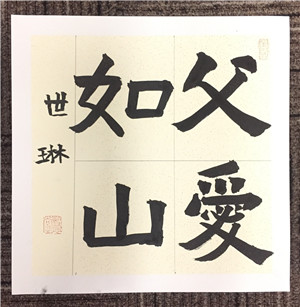 父愛
如山
世琳